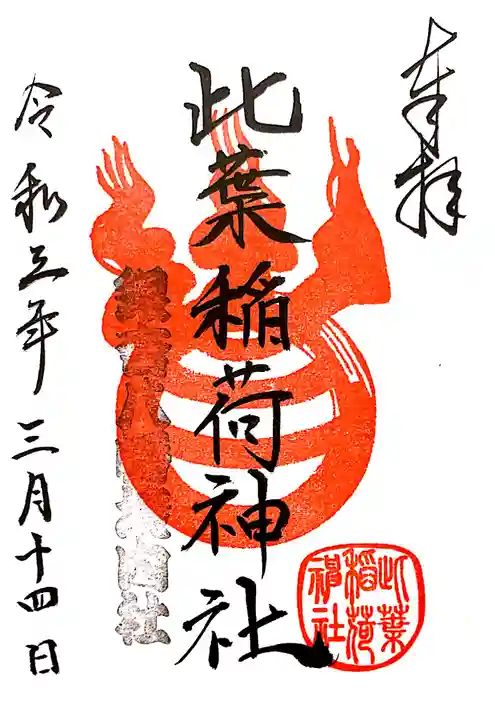 奉拝
此葉稲荷神社
令和三年三月十四日
此葉
稲荷
神社